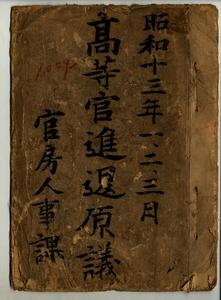 昭和十三年一、二、三月
高等官進退原議
官房人事課